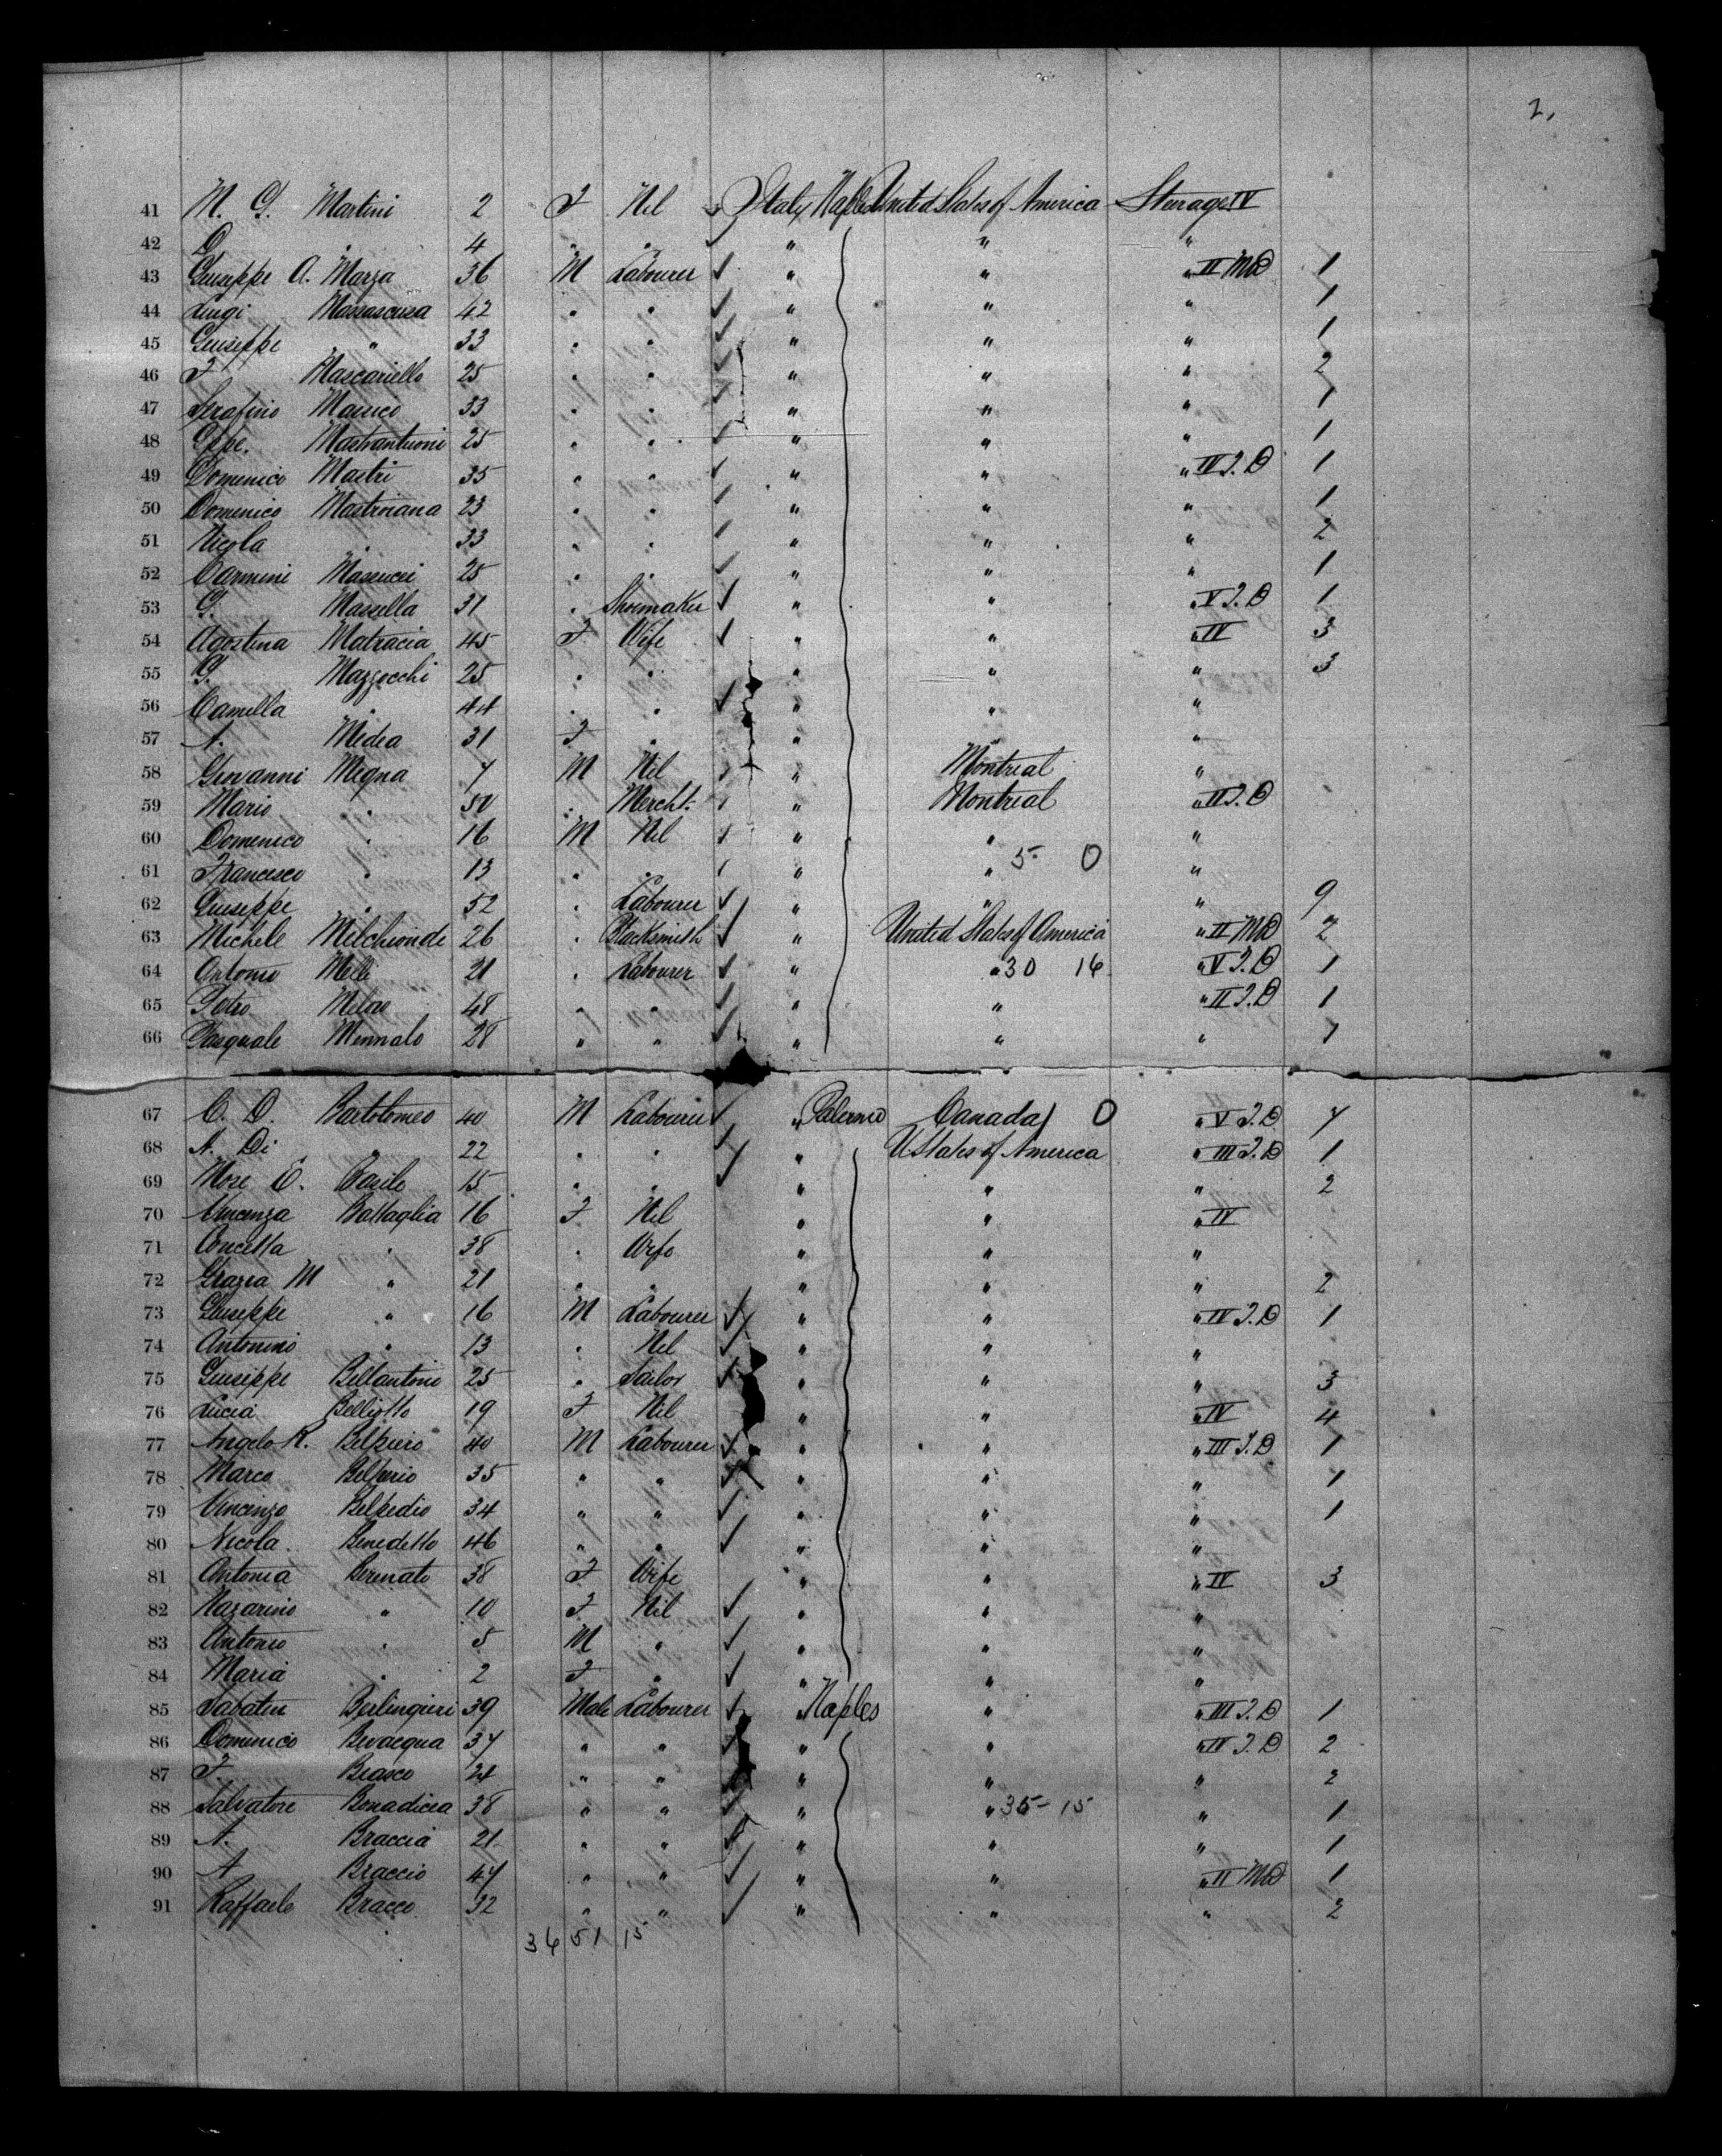 2,
41 M. G. Martini 2 F Nil Italy Naples United States of America Steerage IV
42 D. " 4 " " " " "
43 Giuseppe A. Marza 36 M Labourer ✓ " " " II MD 1
44 Luigi Massascusa 42 " " ✓ " " " 1
45 Giuseppe " 33 " " ✓ " " " 1
46 F Mascariello 25 " " ✓ " " " 2
47 Serafino Masuco 33 " " ✓ " " " 1
48 Gppe. Mastrantuoni 25 " " ✓ " " " 1
49 Domenico Mastri 35 " " ✓ " " " IV I.D 1
50 Domenico Mastroiana 23 " " ✓ " " " 1
51 Nicola " 33 " " ✓ " " " 2
52 Carmini Massucci 25 " " ✓ " " " 1
53 G. Massella 31 " Shoemaker ✓ " " " V I.D 1
54 Agostina Matracia 45 F Wife ✓ " " " IV 3
55 G. Mazzocchi 25 " " " " " 3
56 Camella " 44 " " ✓ " " "
57 A. Midea 31 F " " " "
58 Giovanni Megna 7 M Nil ✓ " Montreal "
59 Mario " 50 " Mercht. ✓ " Montreal " II I.D
60 Domenico " 16 M Nil ✓ " " "
61 Francesco " 13 " " ✓ " " 5- 0 "
62 Giuseppe " 52 " Labourer ✓ " " " 9
63 Michele Milchionde 26 " Blacksmith ✓ " United States of America " II MD 2
64 Antonio Melli 21 " Labourer ✓ " " 30 16 " V I.D 1
65 Petro Meloro 48 " " ✓ " " " II I.D 1
66 Pasquale Mennalo 28 " " ✓ " " " 1
67 C. D. Bartolomeo 40 M Labourer ✓ " Palermo Canada 0 " V I.D 7
68 A. Di " 22 " " ✓ " U States of America " III I.D 1
69 More E. Basile 15 " " ✓ " " " 2
70 Vincenza Battaglia 16 F Nil " " " IV
71 Concetta " 38 " Wife " " "
72 Grazia M " 21 " " " " " 2
73 Giuseppe " 16 M Labourer ✓ " " " IV I.D 1
74 Antonino " 13 " Nil ✓ " " "
75 Giuseppe Bellantoni 25 " Sailor ✓ " " " 3
76 Lucia Belliotto 19 F Nil " " " IV 4
77 Angelo R. Belpiero 40 M Labourer ✓ " " " III I.D 1
78 Marco Belperio 35 " " ✓ " " " 1
79 Vincenzo Belpedio 34 " " ✓ " " " 1
80 Nicola Benedetto 46 " " ✓ " " "
81 Antonia Berenato 38 F Wife " " " IV 3
82 Nazarino " 10 F Nil ✓ " " "
83 Antonio " 5 M " ✓ " " "
84 Maria " 2 F " ✓ " " "
85 Sabatin Berlingieri 39 Male Labourer ✓ Naples " " III I.D 1
86 Domenico Bevacqua 37 " " ✓ " " " IV I.D 2
87 F. Biasco 24 " " ✓ " " " 2
88 Salvatore Bonadicea 38 " " ✓ " " 35- 15 " 1
89 A. Braccia 21 " " ✓ " " " 1
90 A Braccio 47 " " ✓ " " " II MD 1
91 Raffaele Bracco 32 " " ✓ " " " 2
36 51 15